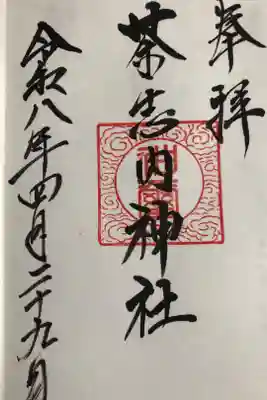 奉拝
茶志内神社
令和八年四月二十九日